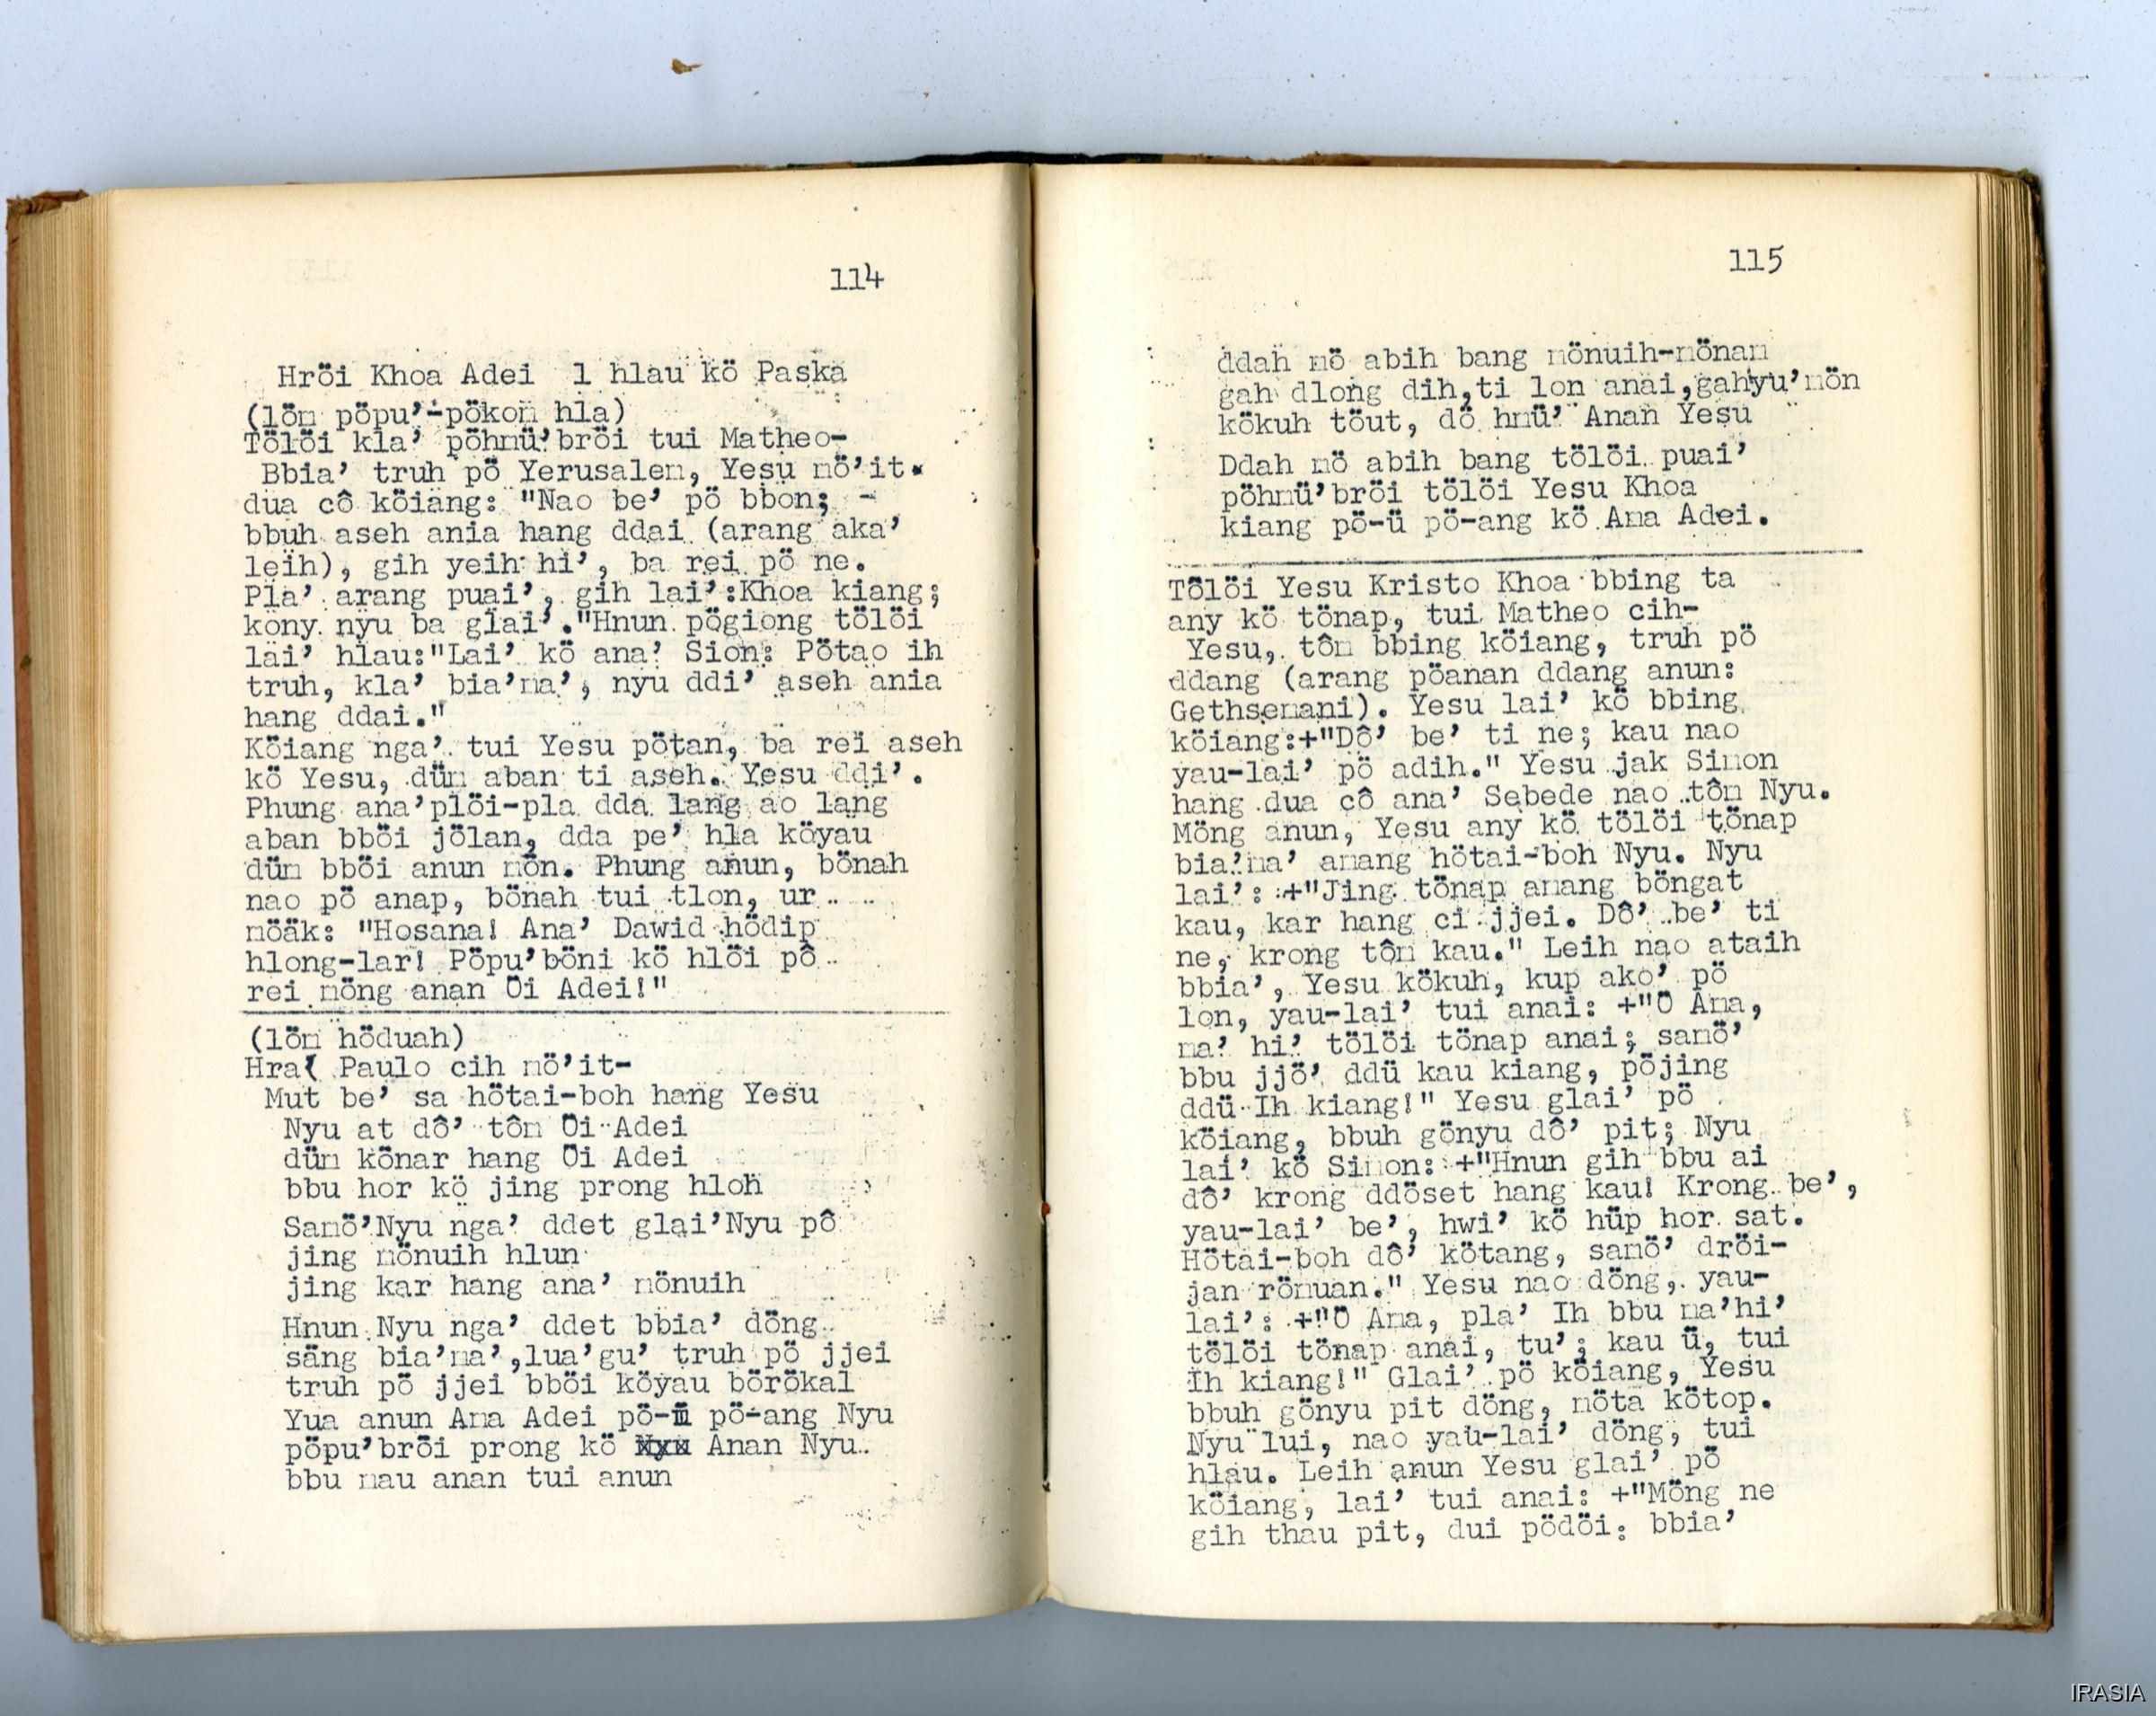 114
Hröi Khoa Adei 1 hlau kö Paska
(löm pöpu'-pökom hla)
Tölöi kla' pöhmü'bröi tui Matheo-
Bbia' truh pö Yerusalem, Yesu mö'it
dua cô köiang: "Nao be' pö bbon; -
bbuh aseh ania hang ddai (arang aka'
leih), gih yeih hi', ba rei pö ne.
Pla' arang puai', gih lai':Khoa kiang;
köny nyu ba glai'."Hnun pögiong tölöi
lai' hlau:"Lai' kö ana' Sion: Pötao ih
truh, kla' bia'ma', nyu ddi' aseh ania
hang ddai."
Köiang nga' tui Yesu pötan, ba rei aseh
kö Yesu, düm aban ti aseh. Yesu ddi'.
Phung ana'plöi-pla dda lang ao lang
aban bböi jölan, dda pe' hla köyau
düm bböi anun mön. Phung anun, bönah
nao pö anap, bönah tui tlon, ur
möäk: "Hosana! Ana' Dawid hödip
hlong-lar! Pöpu'böni kö hlöi pô
rei möng anan Öi Adei!"
(löm höduah)
Hra' Paulo cih mö'it-
Mut be' sa hötai-boh hang Yesu
Nyu at dô' tôm Öi Adei
düm könar hang Öi Adei
bbu hor kö jing prong hloh
Samö'Nyu nga' ddet glai'Nyu pô
jing mönuih hlun
jing kar hang ana' mönuih
Hnun Nyu nga' ddet bbia' döng
säng bia'ma',lua'gu' truh pö jjei
truh pö jjei bböi köyau börökal
Yua anun Ama Adei pö-ü pö-ang Nyu
pöpu'bröi prong kö Anan Nyu
bbu mau anan tui anun
115
ddah mö abih bang mönuih-mönam
gah dlong dih,ti lon anai,gah yu'mön
kökuh töut, dö hmü' Anan Yesu
Ddah mö abih bang tölöi puai'
pöhmü'bröi tölöi Yesu Khoa
kiang pö-ü pö-ang kö Ama Adei.
Tölöi Yesu Kristo Khoa bbing ta
any kö tönap, tui Matheo cih-
Yesu, tôm bbing köiang, truh pö
ddang (arang pöanan ddang anun:
Gethsemani). Yesu lai' kö bbing
köiang:+"Dô' be' ti ne; kau nao
yau-lai' pö adih." Yesu jak Simon
hang dua cô ana' Sebede nao tôm Nyu.
Möng anun, Yesu any kö tölöi tönap
bia'ma' amang hötai-boh Nyu. Nyu
lai': +"Jing tönap amang böngat
kau, kar hang ci jjei. Dô' be' ti
ne, krong tôm kau." Leih nao ataih
bbia', Yesu kökuh, kup ako' pö
lon, yau-lai' tui anai: +"Ö Ama,
ma' hi' tölöi tönap anai; samö'
bbu jjö' ddü kau kiang, pöjing
ddü Ih kiang!" Yesu glai' pö
köiang, bbuh gönyu dô' pit; Nyu
lai' kö Simon: +"Hnun gih bbu ai
dô' krong ddöset hang kau! Krong be',
yau-lai' be', hwi' kö hüp hor sat.
Hötai-boh dô' kötang, samö' dröi-
jan römuan." Yesu nao döng, yau-
lai': +"Ö Ama, pla' Ih bbu ma'hi'
tölöi tönap anai, tu'; kau ü, tui
Ih kiang!" Glai' pö köiang, Yesu
bbuh gönyu pit döng, möta kötop.
Nyu lui, nao yau-lai' döng, tui
hlau. Leih anun Yesu glai' pö
köiang, lai' tui anai: +"Möng ne
gih thau pit, dui pödöi: bbia'
IRASIA